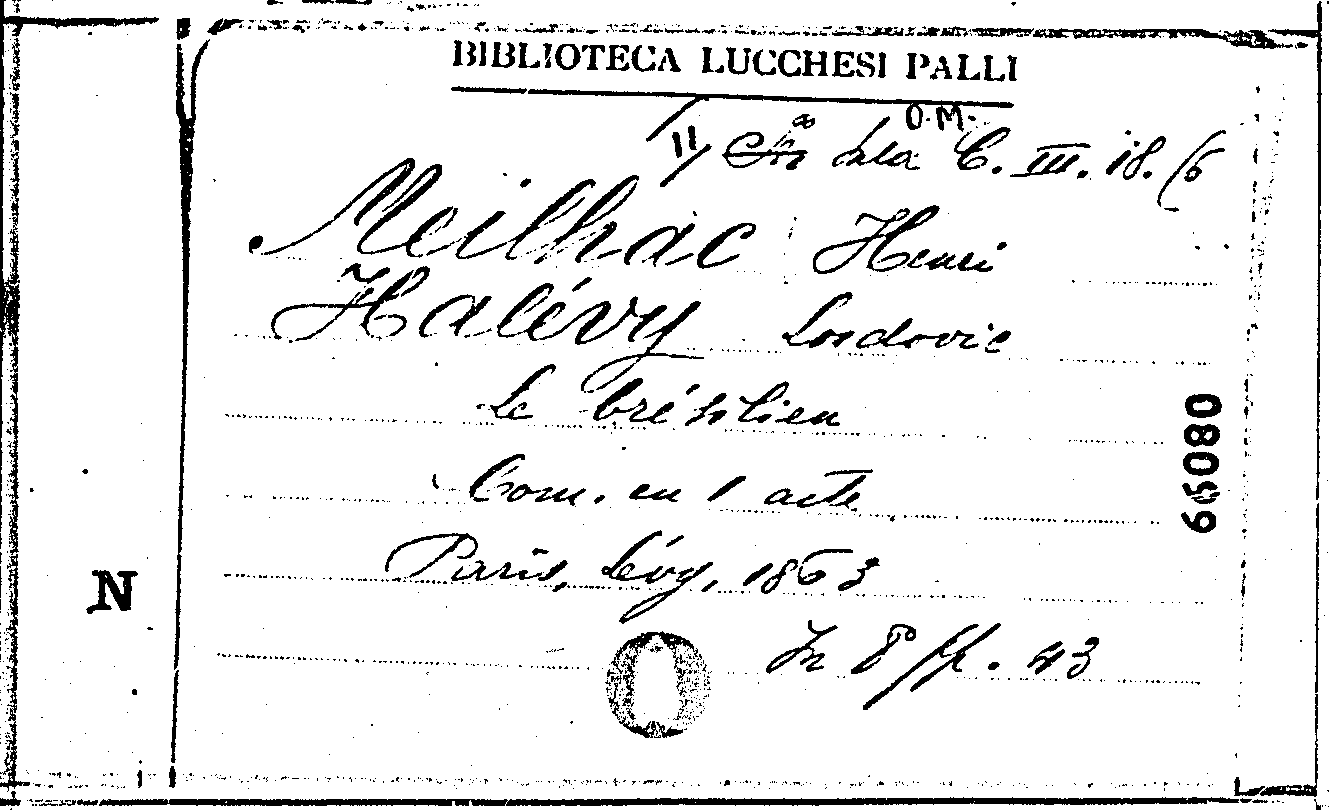 BIBLIOTECA LUCCHESI PALLI
O.M.
Sala C. III. 18. (6
Meilhac Henri
Halévy Lordovic
Le brésilien
Com. en 1 acte
Paris, Lévy, 1863
In 8º pp. 43
66080
N